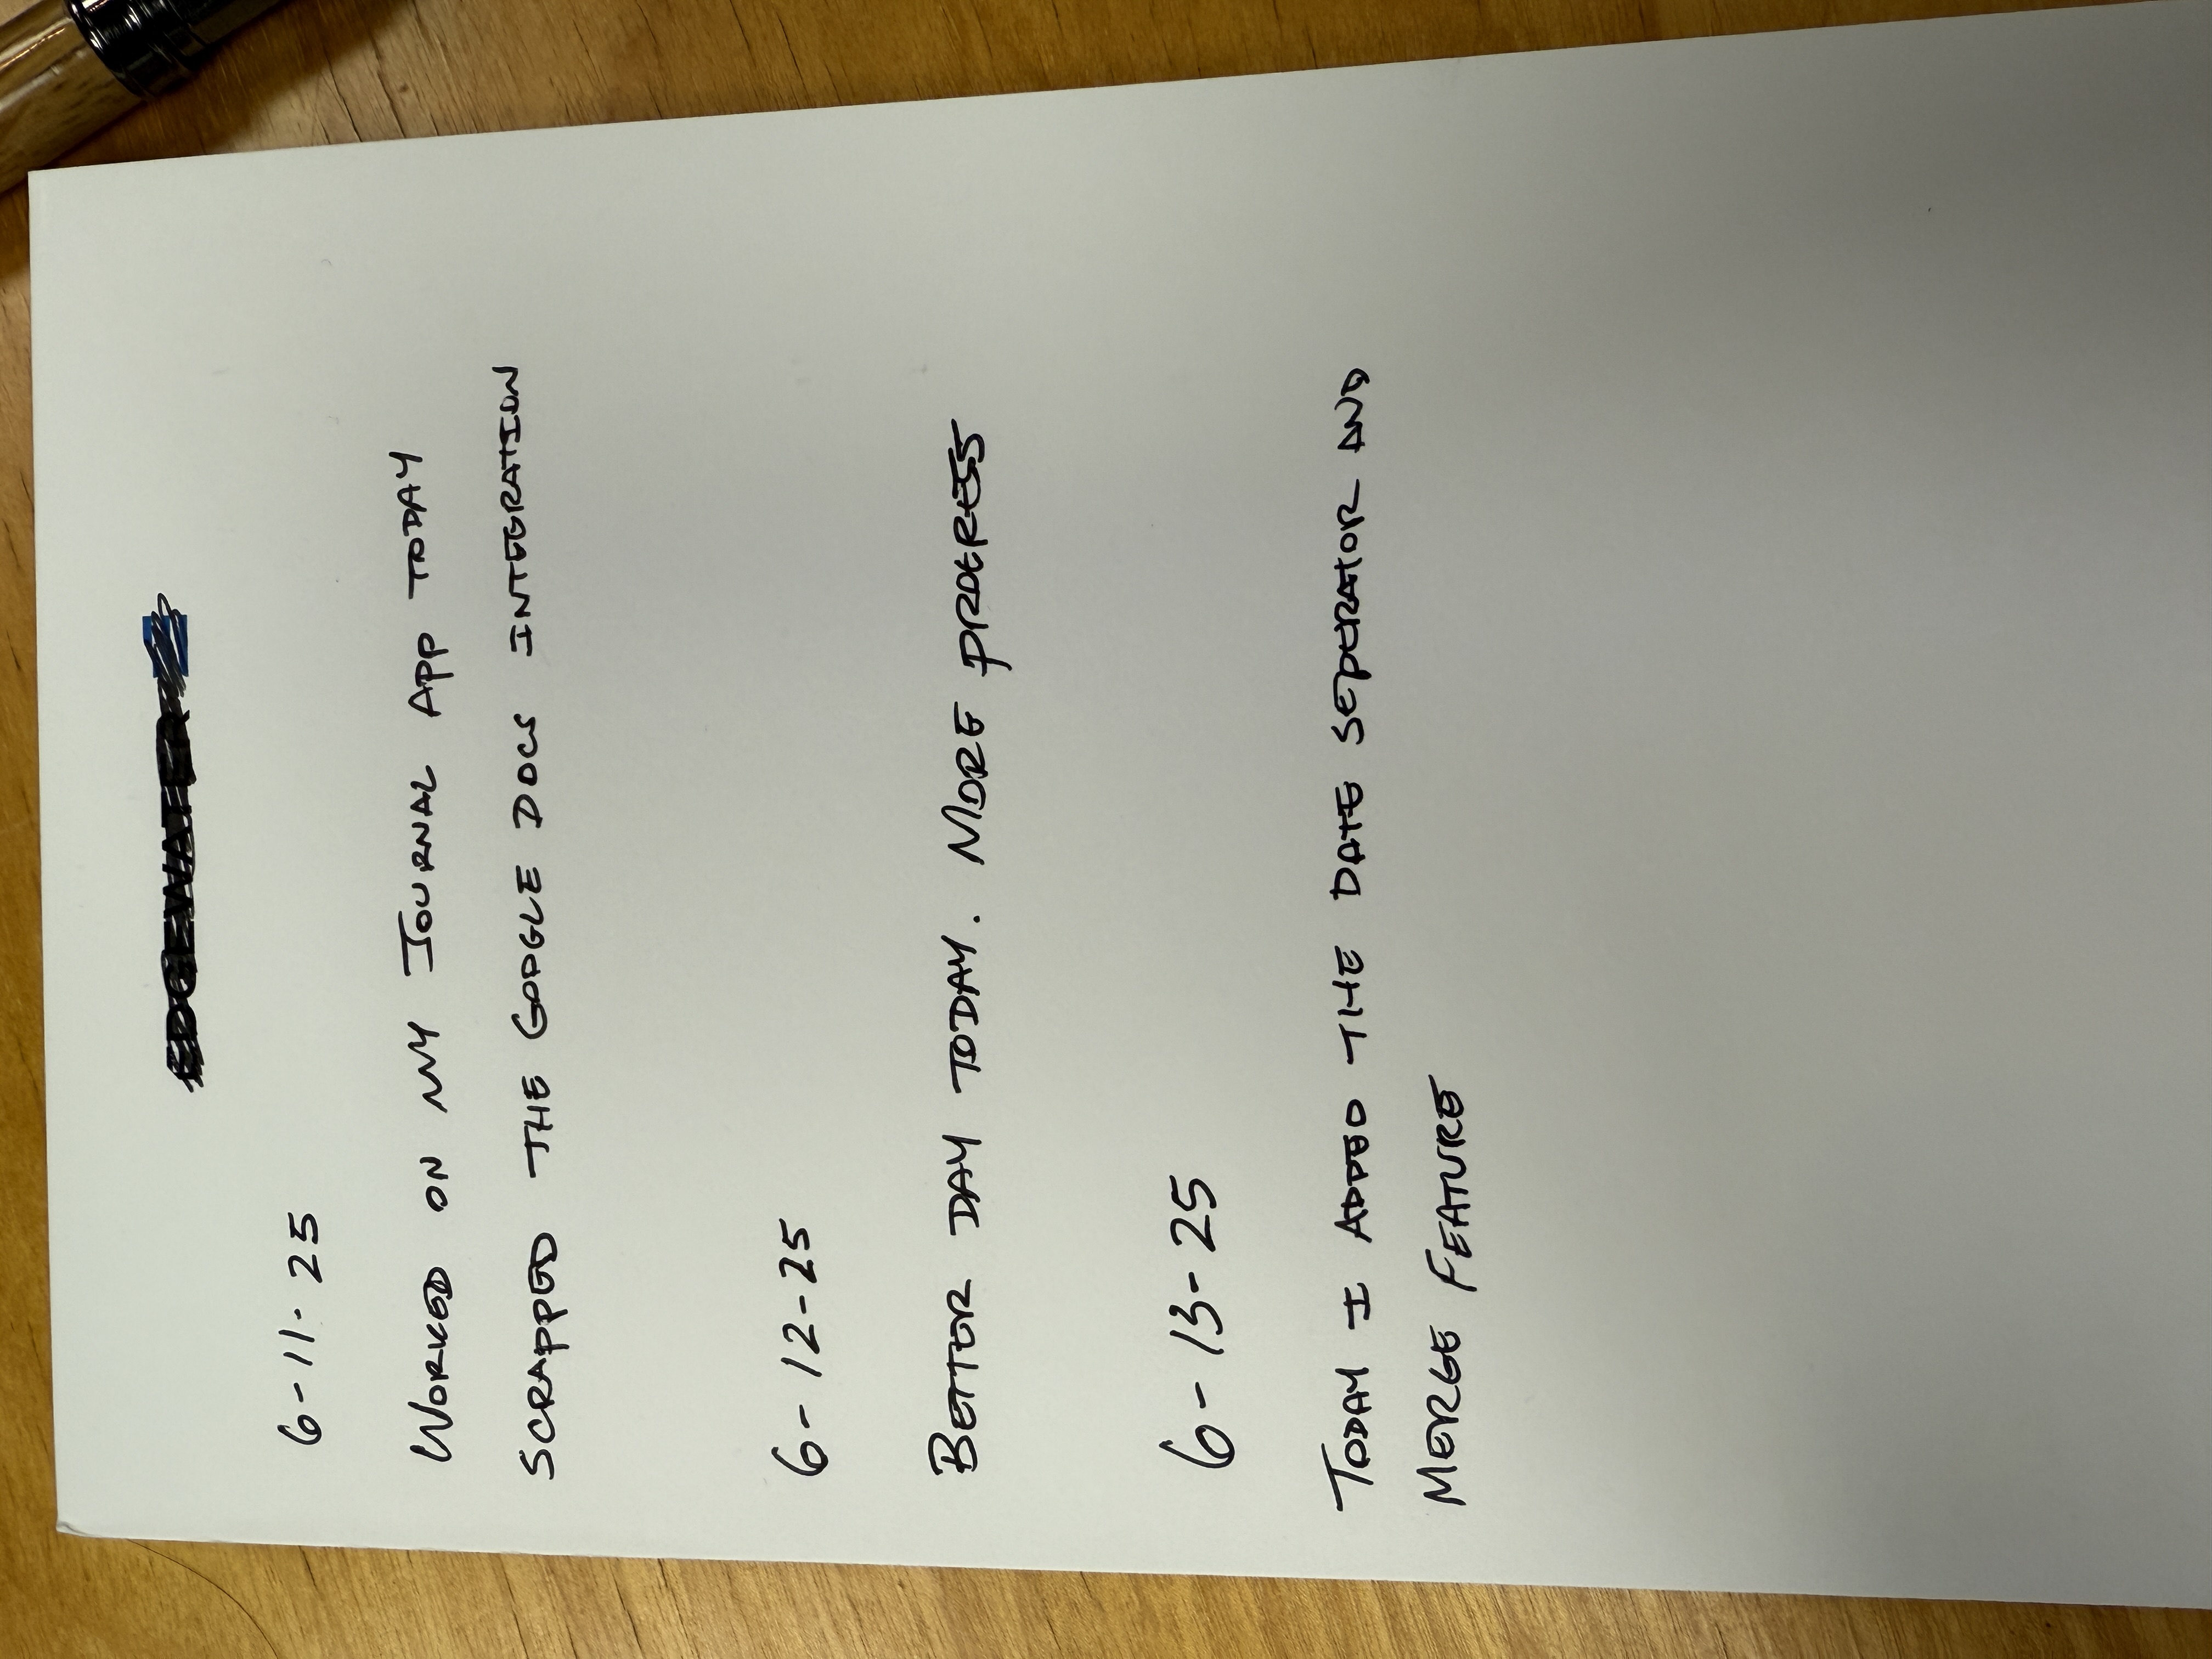 EDGEWATER
6-11-25
WORKED ON MY JOURNAL APP TODAY
SCRAPPED THE GOOGLE DOCS INTEGRATION
6-12-25
BETTER DAY TODAY. MORE PROGRESS
6-13-25
TODAY I ADDED THE DATE SEPERATOR AND
MERGE FEATURE